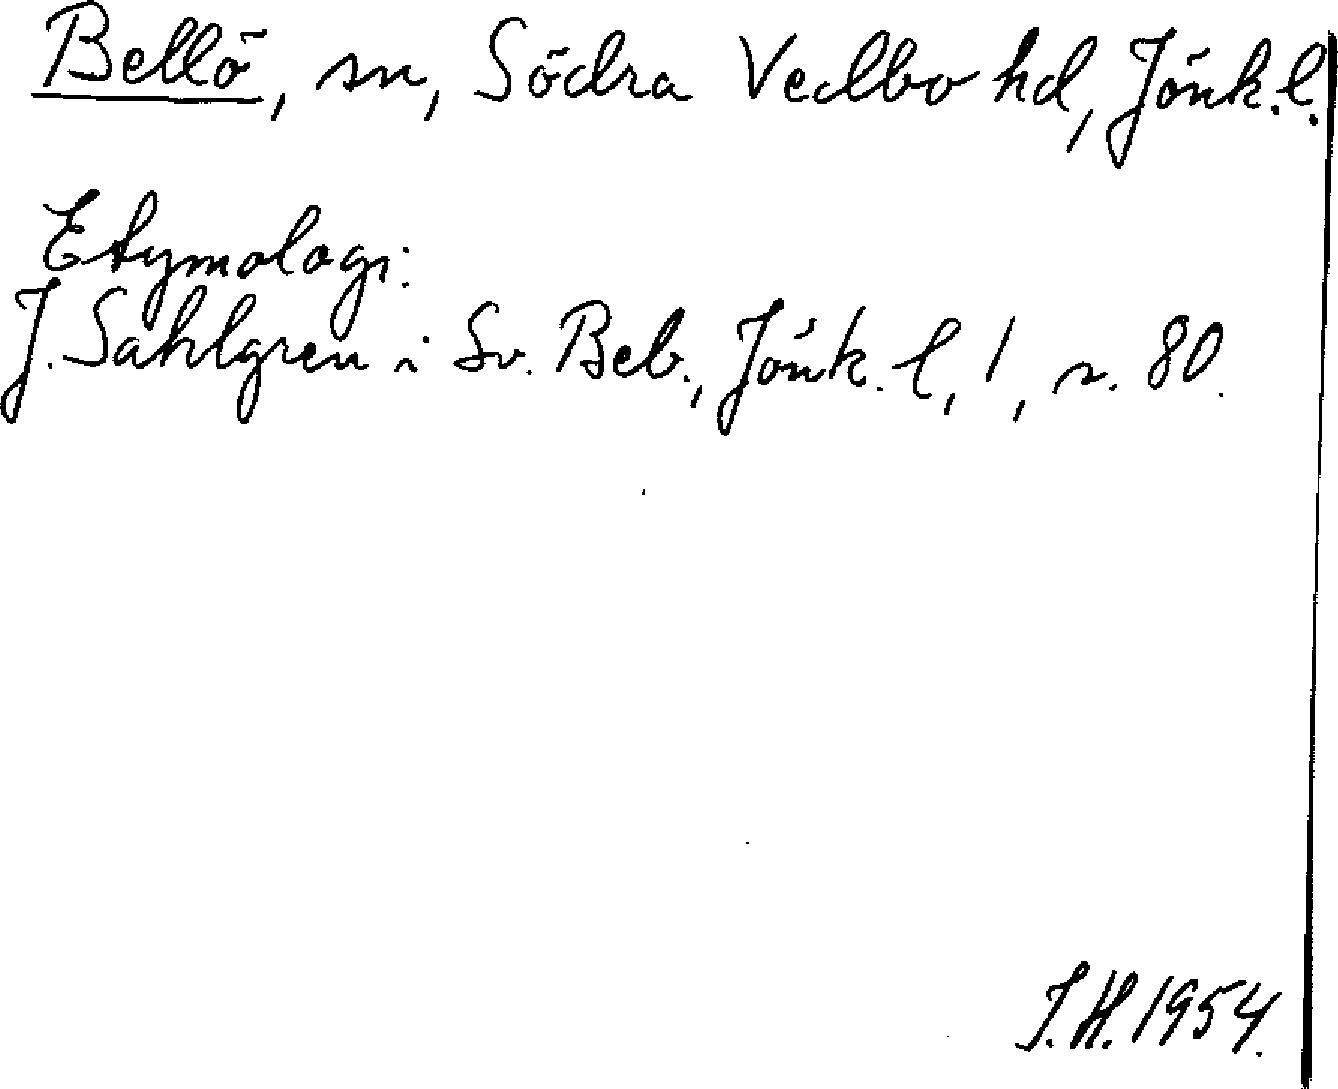 Bellö, sn, Södra Vedbo hd, Jönk. l.
Etymologi:
J. Sahlgren i Sv. Beb., Jönk. l, 1, s. 80.
I.H. 1954.